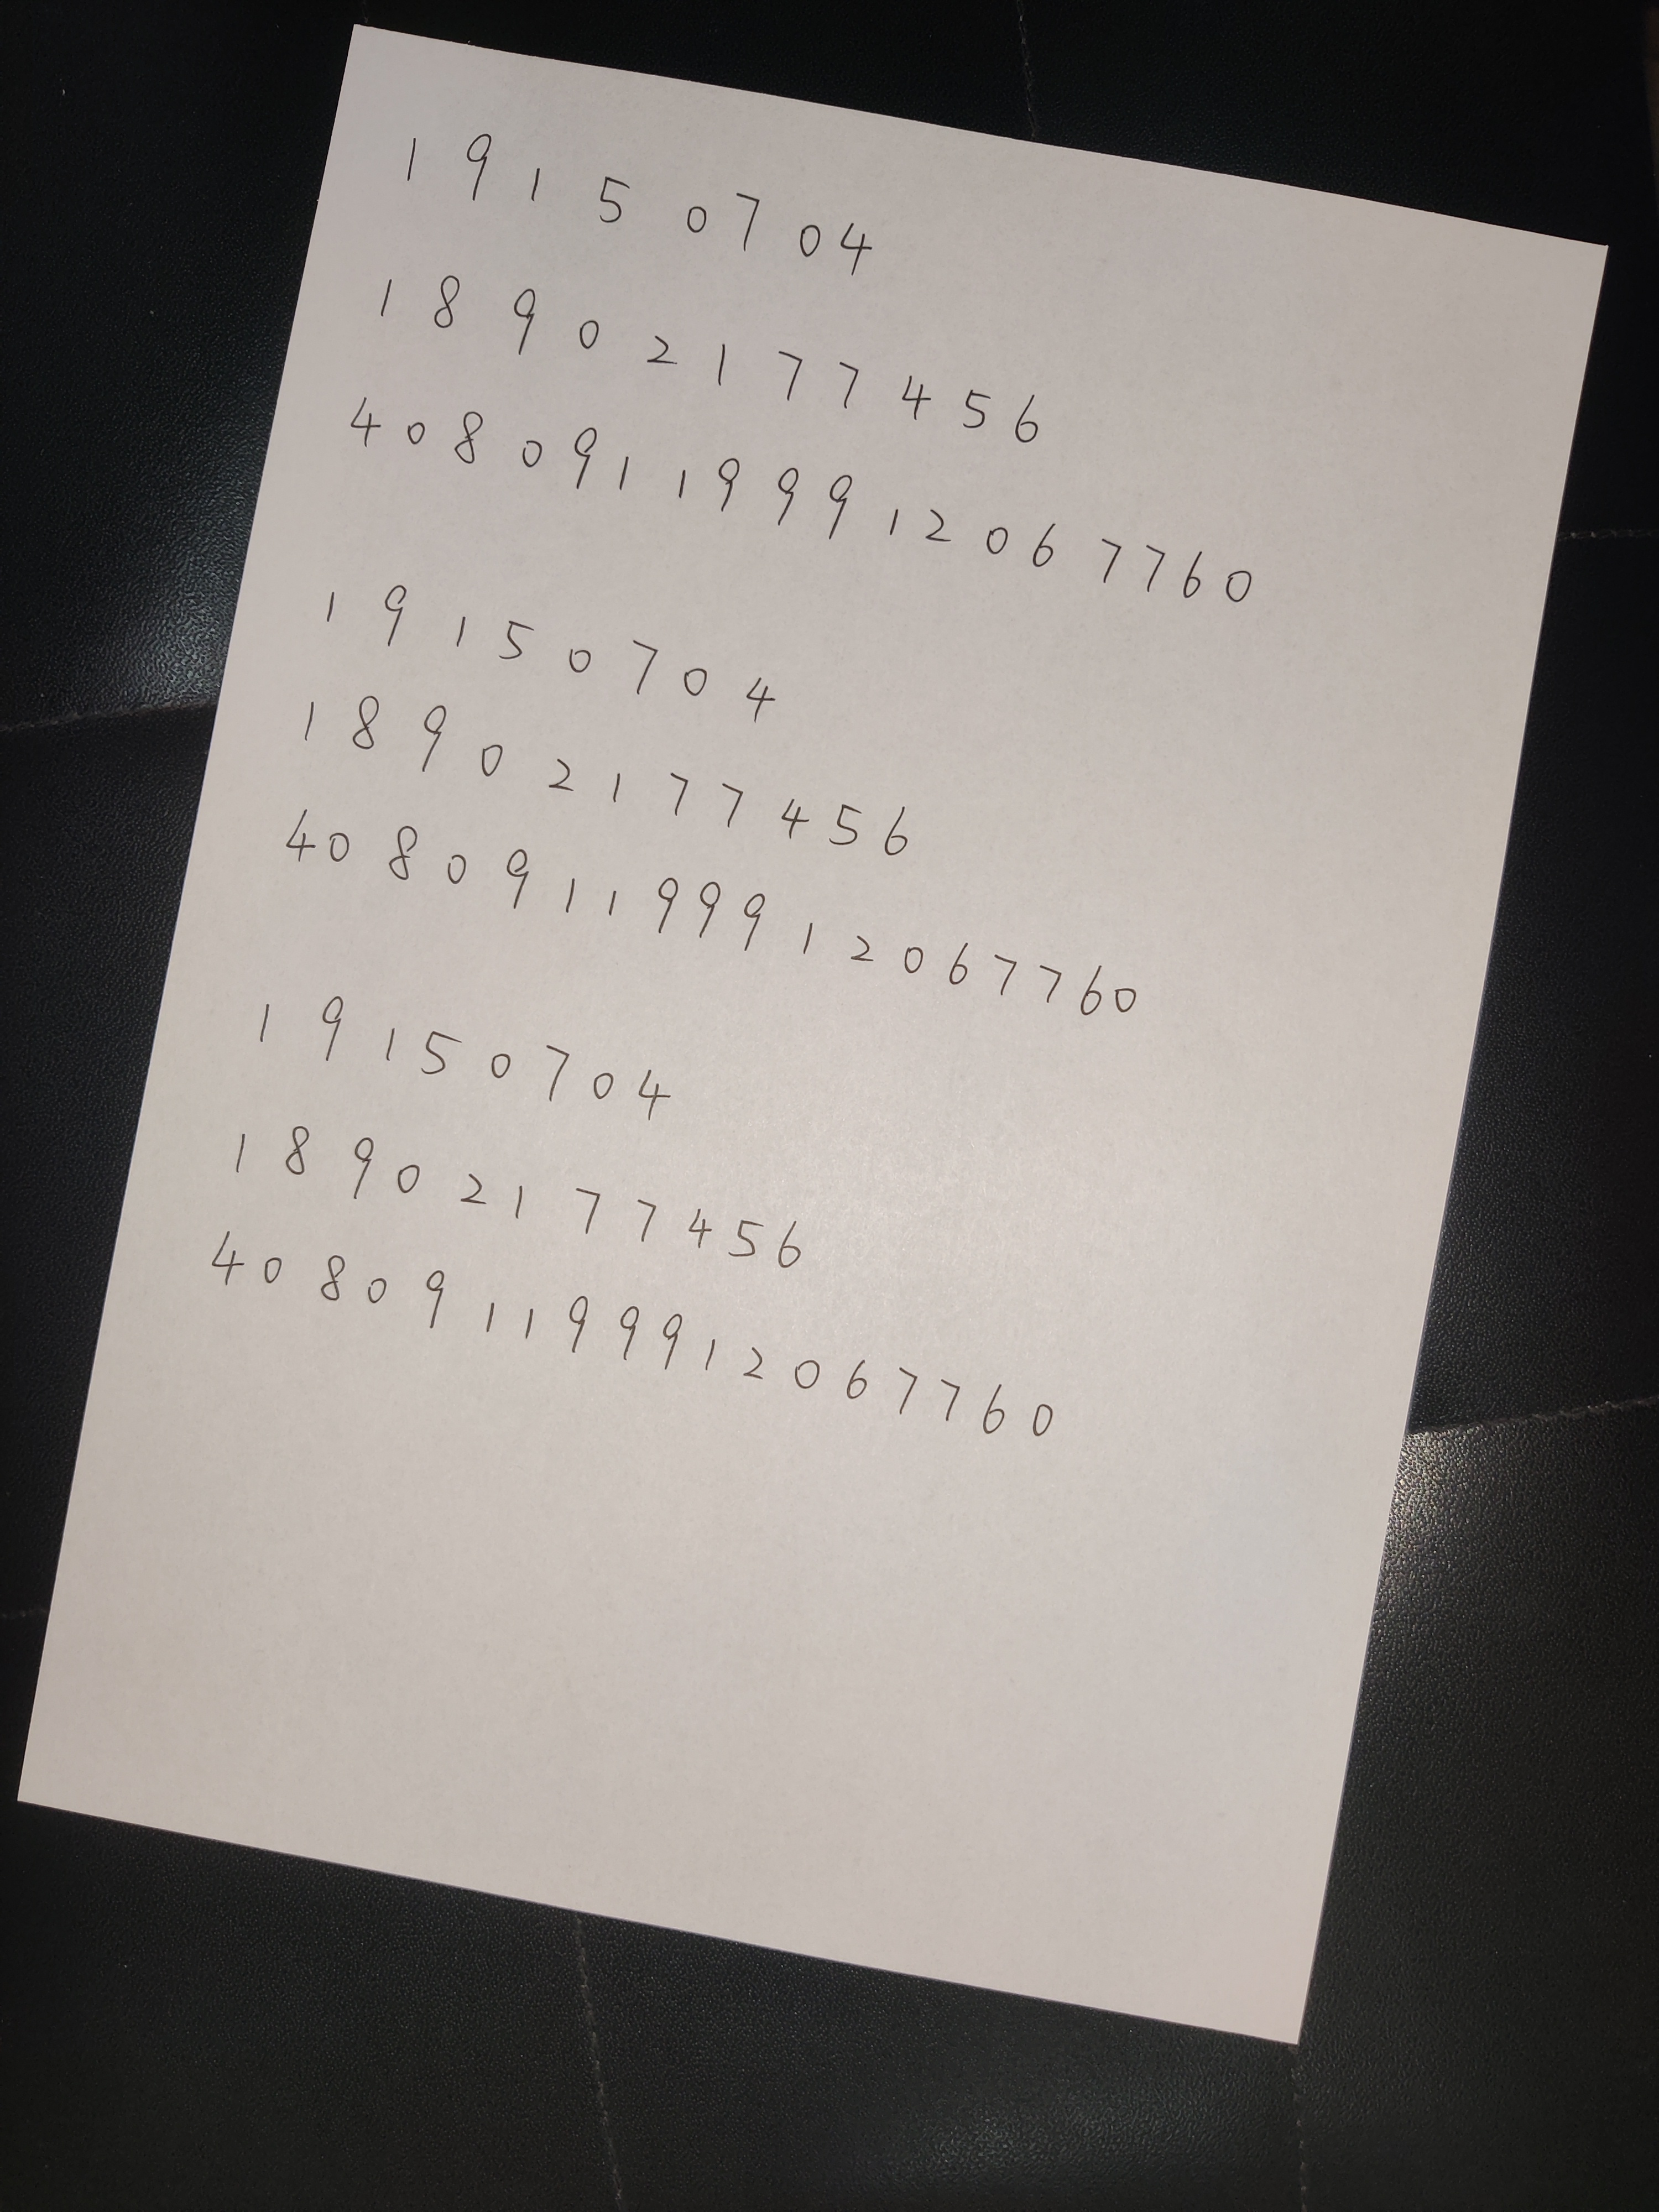 19150704
18902177456
408091199912067760
19150704
18902177456
408091199912067760
19150704
18902177456
408091199912067760